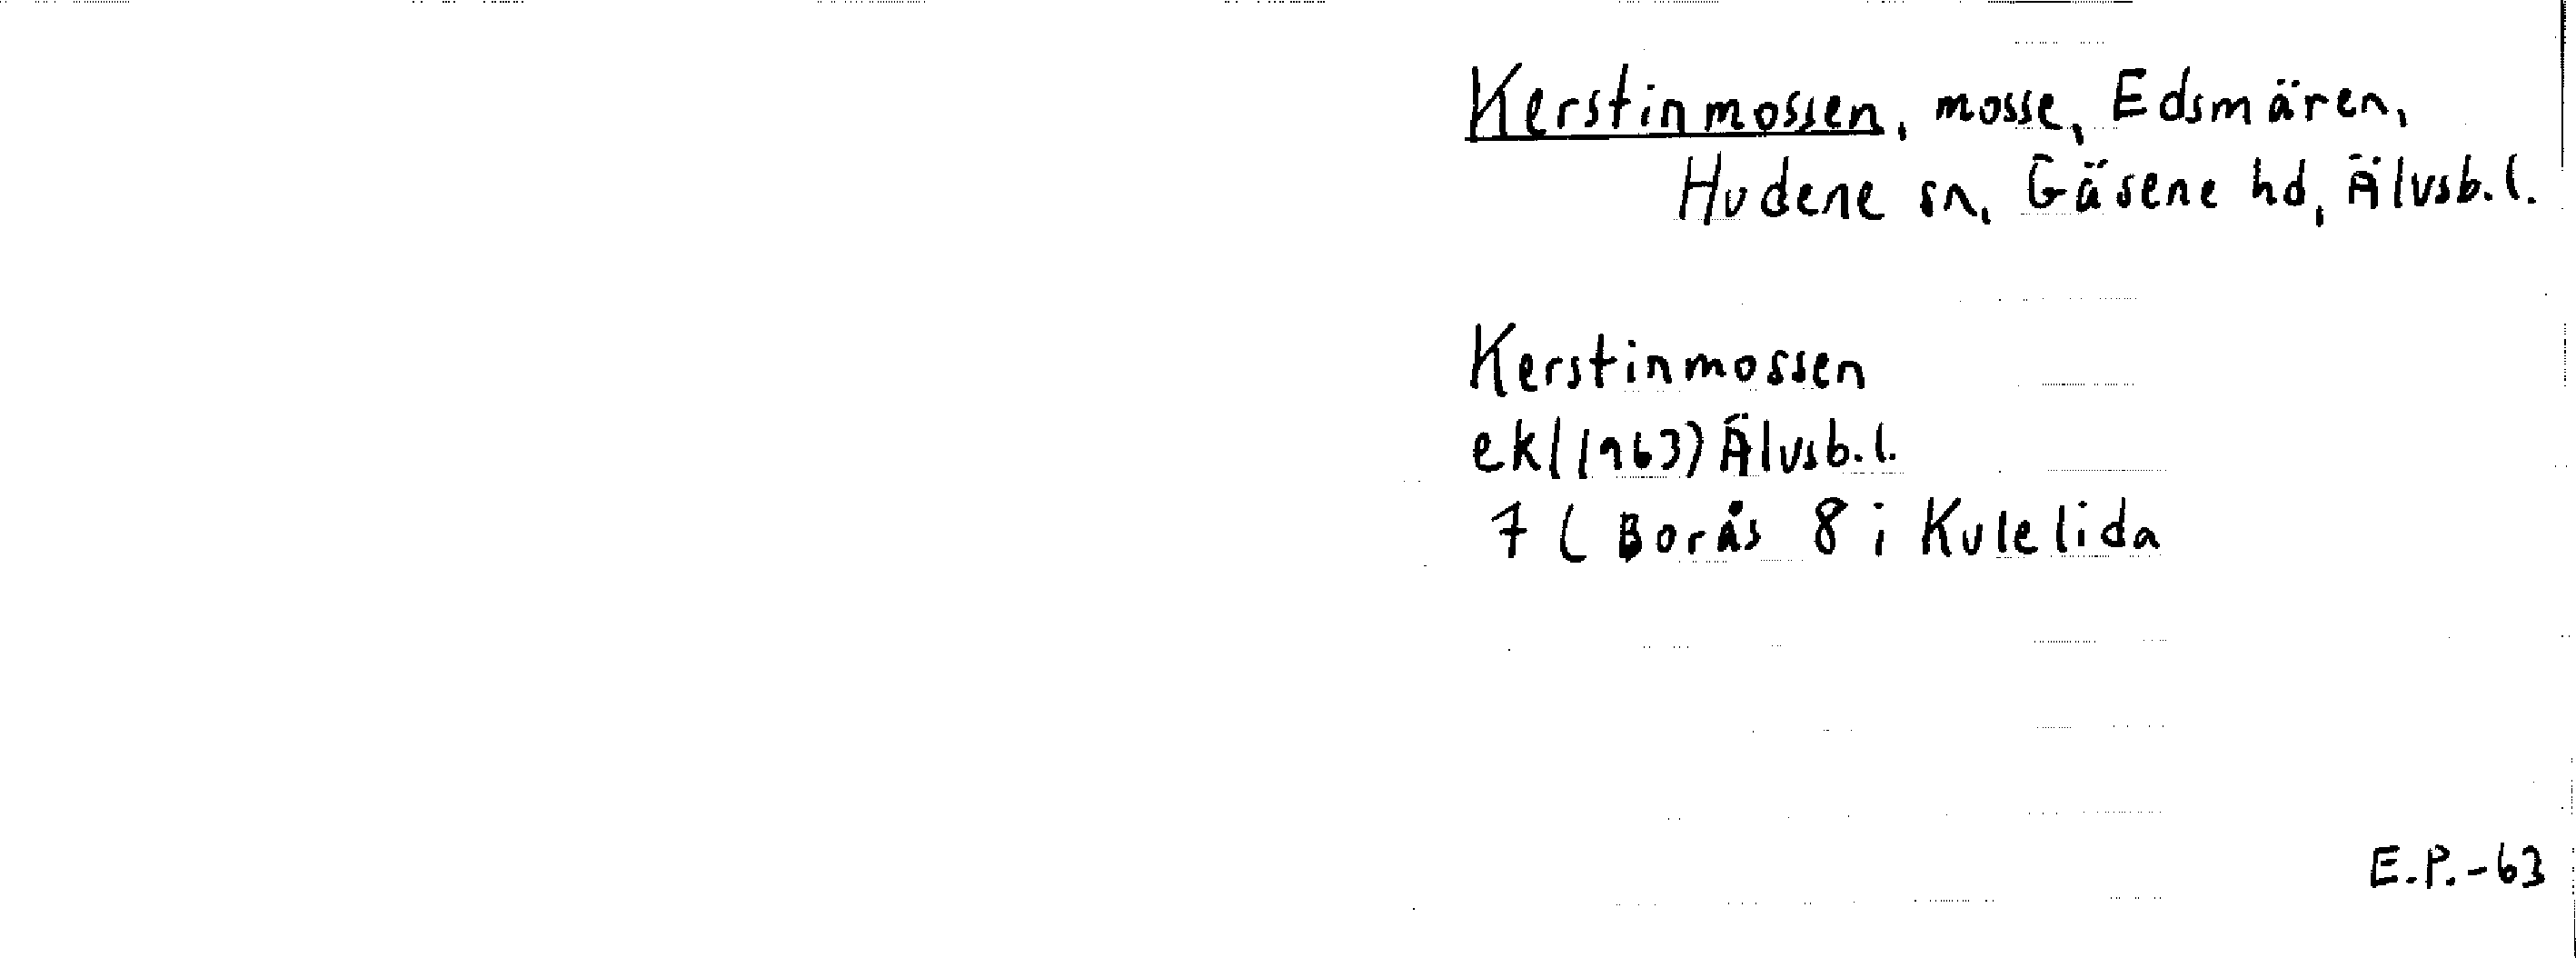 Kerstinmossen, mosse, Edsmären,
Hudene sn, Gäsene hd, Älvsb.l.
Kerstinmossen
ekl(1963) Älvsb.l.
7 C Borås 8 i Kulelida
E.P.-63